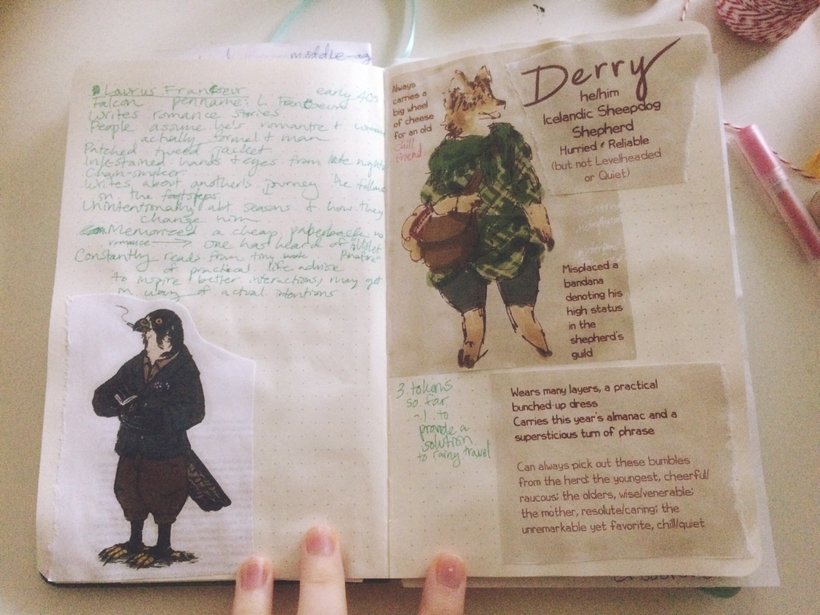 middle-ag
Laurus Francoeur early 40s
Falcon penname: L. Francoeur
Writes romance stories
People assume he's romantic +
actually formal + man
Patched tweed jacket
Inkstained hands + eyes from late nights
Chain-smoker
Writes about another's journey he follows
in the footsteps
Unintentionally abt seasons + how they
change him
Memorized a cheap paperback
romance one has heard of
Constantly reads from tiny
of practical life advice
to inspire better interactions, may get
in way of actual intentions
Always
carries a
big wheel
of cheese
for an old
friend
Derry
he/him
Icelandic Sheepdog
Shepherd
Hurried & Reliable
(but not Levelheaded
or Quiet)
Misplaced a
bandana
denoting his
high status
in the
shepherd's
guild
3 tokens
so far
-1 to
provide a
solution
to rainy travel
Wears many layers, a practical
bunched-up dress
Carries this year's almanac and a
supersticious turn of phrase
Can always pick out these bumbles
from the herd: the youngest, cheerful/
raucous; the olders, wise/venerable;
the mother, resolute/caring; the
unremarkable yet favorite, chill/quiet